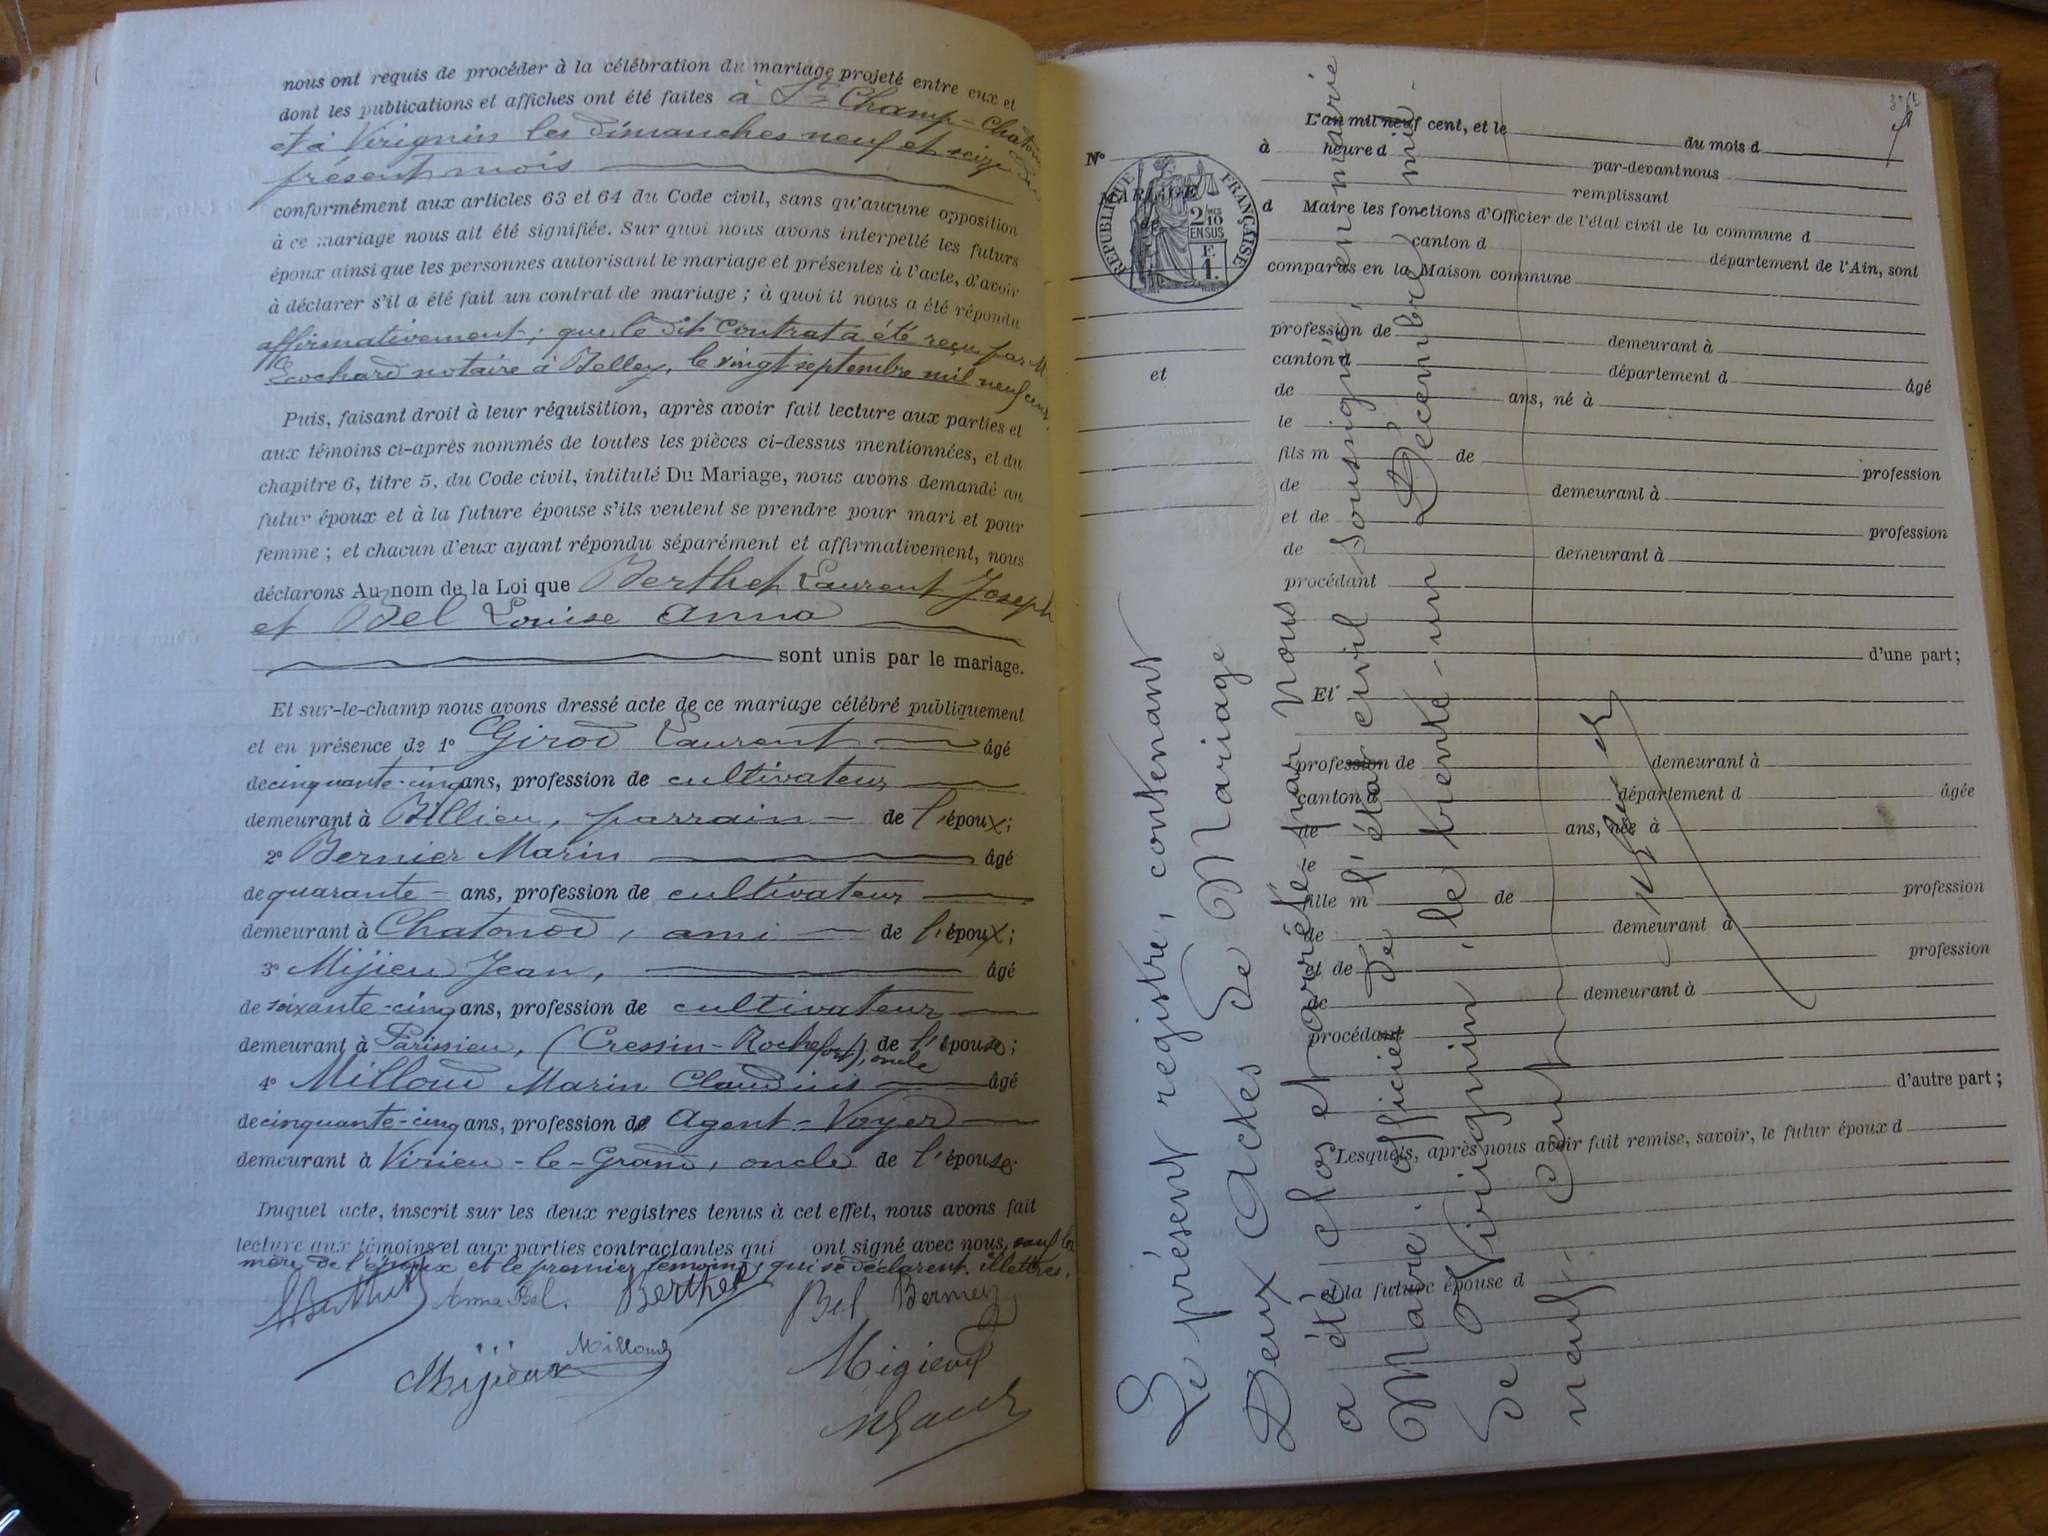 nous ont requis de procéder à la célébration du mariage projeté entre eux et
dont les publications et affiches ont été faites à St Champ-Chatonod
et à Virignin les dimanches neuf et seize du
présent mois
conformément aux articles 63 et 64 du Code civil, sans qu'aucune opposition
à ce mariage nous ait été signifiée. Sur quoi nous avons interpellé les futurs
époux ainsi que les personnes autorisant le mariage et présentes à l'acte, d'avoir
à déclarer s'il a été fait un contrat de mariage ; à quoi il nous a été répondu
affirmativement ; que le dit contrat a été reçu par Me
notaire à Belley, le vingt septembre mil neuf cent.
Puis, faisant droit à leur réquisition, après avoir fait lecture aux parties et
aux témoins ci-après nommés de toutes les pièces ci-dessus mentionnées, et du
chapitre 6, titre 5, du Code civil, intitulé Du Mariage, nous avons demandé au
futur époux et à la future épouse s'ils veulent se prendre pour mari et pour
femme ; et chacun d'eux ayant répondu séparément et affirmativement, nous
déclarons Au nom de la Loi que Berthet Laurent Joseph
et Bel Louise Anna
sont unis par le mariage.
Et sur-le-champ nous avons dressé acte de ce mariage célébré publiquement
et en présence de 1° Girod Laurent âgé
de cinquante-cinq ans, profession de cultivateur
demeurant à Billieu, parrain de l'époux ;
2° Bernier Marin âgé
de quarante ans, profession de cultivateur
demeurant à Chatonod, ami de l'époux ;
3° Mijieu Jean, âgé
de soixante-cinq ans, profession de cultivateur
demeurant à Parissieu, (Cressin-Rochefort), oncle de l'épouse ;
4° Milloud Marin Claudius âgé
de cinquante-cinq ans, profession de Agent-Voyer
demeurant à Virieu-le-Grand, oncle de l'épouse.
Duquel acte, inscrit sur les deux registres tenus à cet effet, nous avons fait
lecture aux témoins et aux parties contractantes qui ont signé avec nous, sauf la
mère de l'époux et le premier témoin, qui se déclarent illettrés.
Berthet Anna Bel. Berthet Bel
Milloud
N°
MARIAGE
de
et
RÉPUBLIQUE FRANÇAISE
2/10 EN SUS
F.
1.
L'an mil neuf cent, et le du mois d
à heure d par-devant nous
remplissant
d Maire les fonctions d'Officier de l'état civil de la commune d
canton d département de l'Ain, sont
comparus en la Maison commune
profession de demeurant à
canton d département d âgé
de ans, né à
le
fils m de profession
de demeurant à
et de profession
de demeurant à
procédant
d'une part ;
Et
profession de demeurant à
canton d département d âgée
de ans, née à
le
fille m de profession
de demeurant à
et de profession
de demeurant à
procédant
d'autre part ;
Lesquels, après nous avoir fait remise, savoir, le futur époux d
et la future épouse d
Le présent registre, contenant
Deux Actes de Mariage
a été clos et arrêté par Nous
Maire, officier de l'état civil soussigné, en mairie
de Virignin, le trente-un Décembre mil
neuf-cent